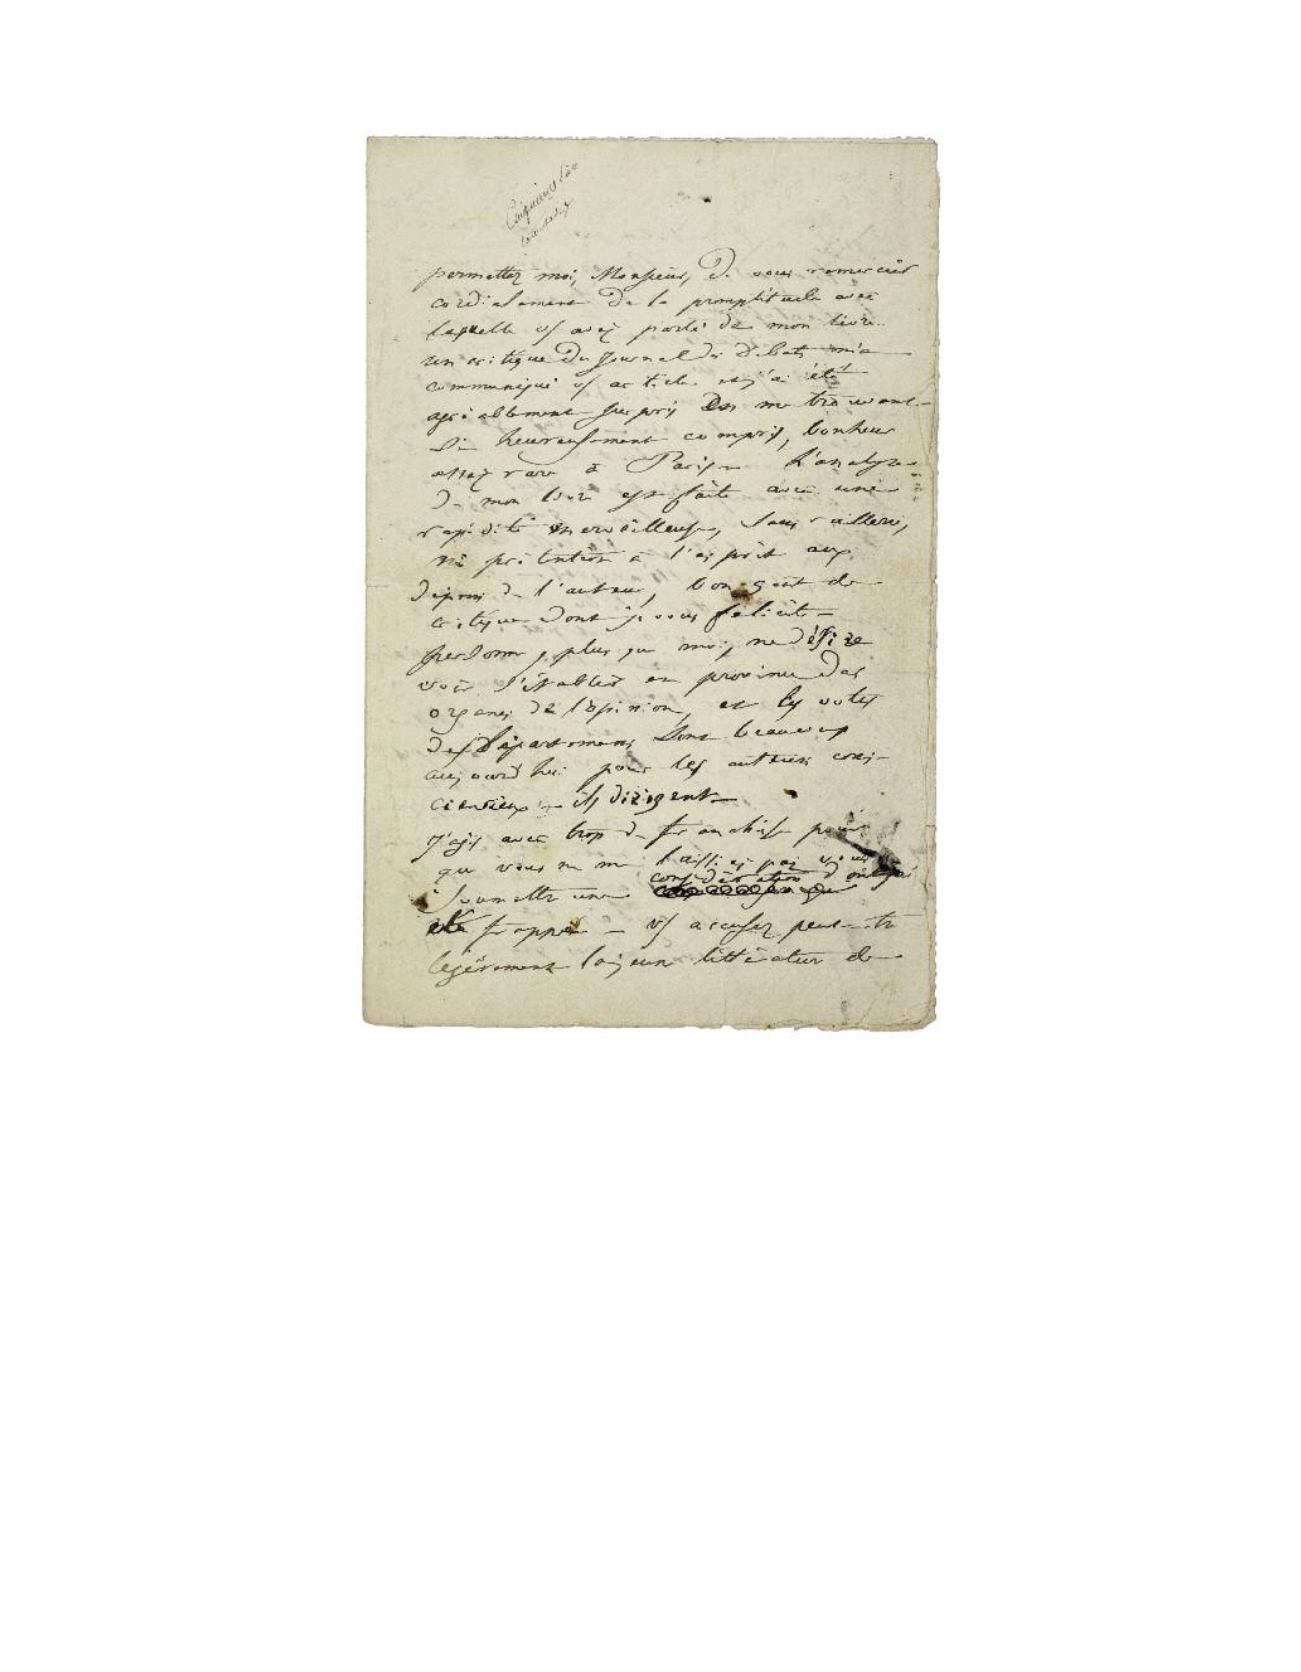 permettez moi, Monsieur, de vous remercier
cordialement de la promptitude avec
laquelle vs avez parlé de mon livre.
un critique du journal des débats m'a
communiqué vs article et j'ai été
agréablement surpris en me trouvant
si heureusement compris, bonheur
assez rare à Paris — L'analyse
de mon livre est faite avec une
rapidité merveilleuse, sans raillerie,
ni prétention à l'esprit aux
dépens de l'auteur, bon goût de
critique dont je vous félicite —
personne, plus que moi, ne désire
voir s'établir en province des
organes de l'opinion, et les votes
des départemens sont beaucoup
aujourd'hui pour les auteurs cons-
ciencieux — ils dirigent —
J'agis avec trop de franchise pour
que vous ne me laissiez pas vous
soumettre une considération d'où j'ai
été frappé — vs accusez peut-être
légèrement la jeune littérature de